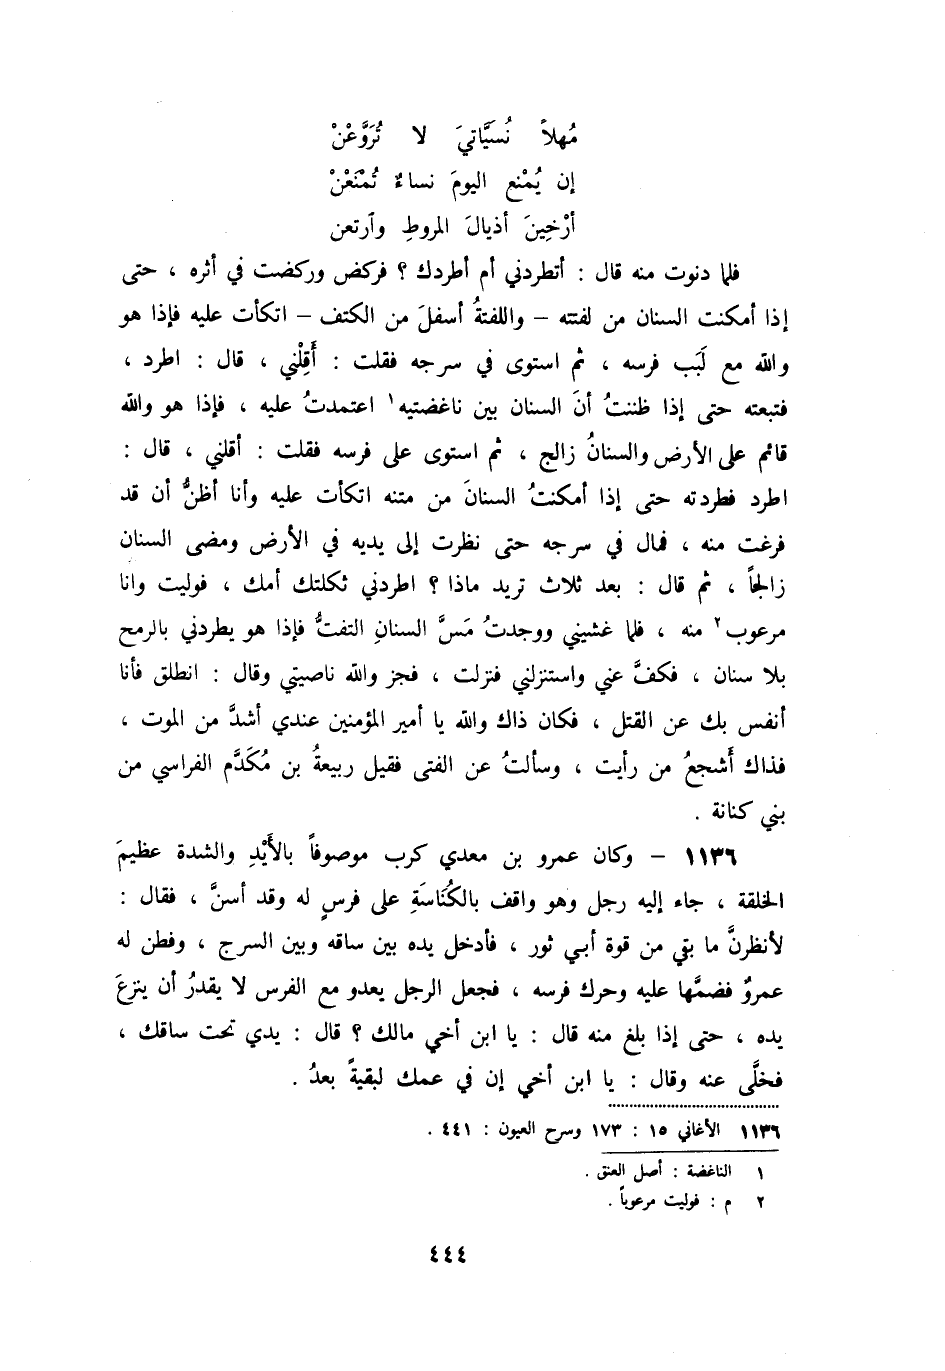 مُهلاً نُسَيَّاتيَ لا تُرَوَّعْنْ
إن يُمْنع اليومَ نساءٌ تُمْنَعْنْ
أرْخِينَ أذيالَ المروطِ وآرتعن
فلما دنوت منه قال : أتطردني أم أطردك ؟ فركض وركضت في أثره ، حتى
إذا أمكنت السنان من لفتته – واللفتةُ أسفلَ من الكتف – اتكأت عليه فإذا هو
والله مع لَبَب فرسه ، ثم استوى في سرجه فقلت : أَقِلْني ، قال : اطرد ،
فتبعته حتى إذا ظننتُ أنَ السنان بين ناغضتيه١ اعتمدتُ عليه ، فإذا هو والله
قائم على الأرض والسنانُ زالج ، ثم استوى على فرسه فقلت : أقلني ، قال :
اطرد فطردته حتى إذا أمكنتُ السنانَ من متنه اتكأت عليه وأنا أظنُّ أن قد
فرغت منه ، فمال في سرجه حتى نظرت إلى يديه في الأرض ومضى السنان
زالجاً ، ثم قال : بعد ثلاث تريد ماذا ؟ اطردني ثكلتك أمك ، فوليت وانا
مرعوب٢ منه ، فلما غشيني ووجدتُ مَسَّ السنانِ التفتُّ فإذا هو يطردني بالرمح
بلا سنان ، فكفَّ عني واستنزلني فنزلت ، فجز والله ناصيتي وقال : انطلق فأنا
أنفس بك عن القتل ، فكان ذاك والله يا أمير المؤمنين عندي أشدَّ من الموت ،
فذاك أَشجعُ من رأيت ، وسألتُ عن الفتى فقيل ربيعةُ بن مُكَدَّم الفراسي من
بني كنانة .
١١٣٦ – وكان عمرو بن معدي كرب موصوفاً بالأَيْدِ والشدة عظيمَ
الخلقة ، جاء إليه رجل وهو واقف بالكُنَاسَةِ على فرسٍ له وقد أسنَّ ، فقال :
لأنظرنَّ ما بقي من قوة أبي ثور ، فأدخل يده بين ساقه وبين السرج ، وفطن له
عمروٌ فضمَّها عليه وحرك فرسه ، فجعل الرجل يعدو مع الفرس لا يقدرُ أن ينزعَ
يده ، حتى إذا بلغ منه قال : يا ابن أخي مالك ؟ قال : يدي تحت ساقك ،
فخلَّى عنه وقال : يا ابن أخي إن في عمك لبقيةً بعدُ .
١١٣٦ الأغاني ١٥ : ١٧٣ وسرح العيون : ٤٤١ .
١ الناغضة : أصل العنق .
٢ م : فوليت مرعوباً .
٤٤٤